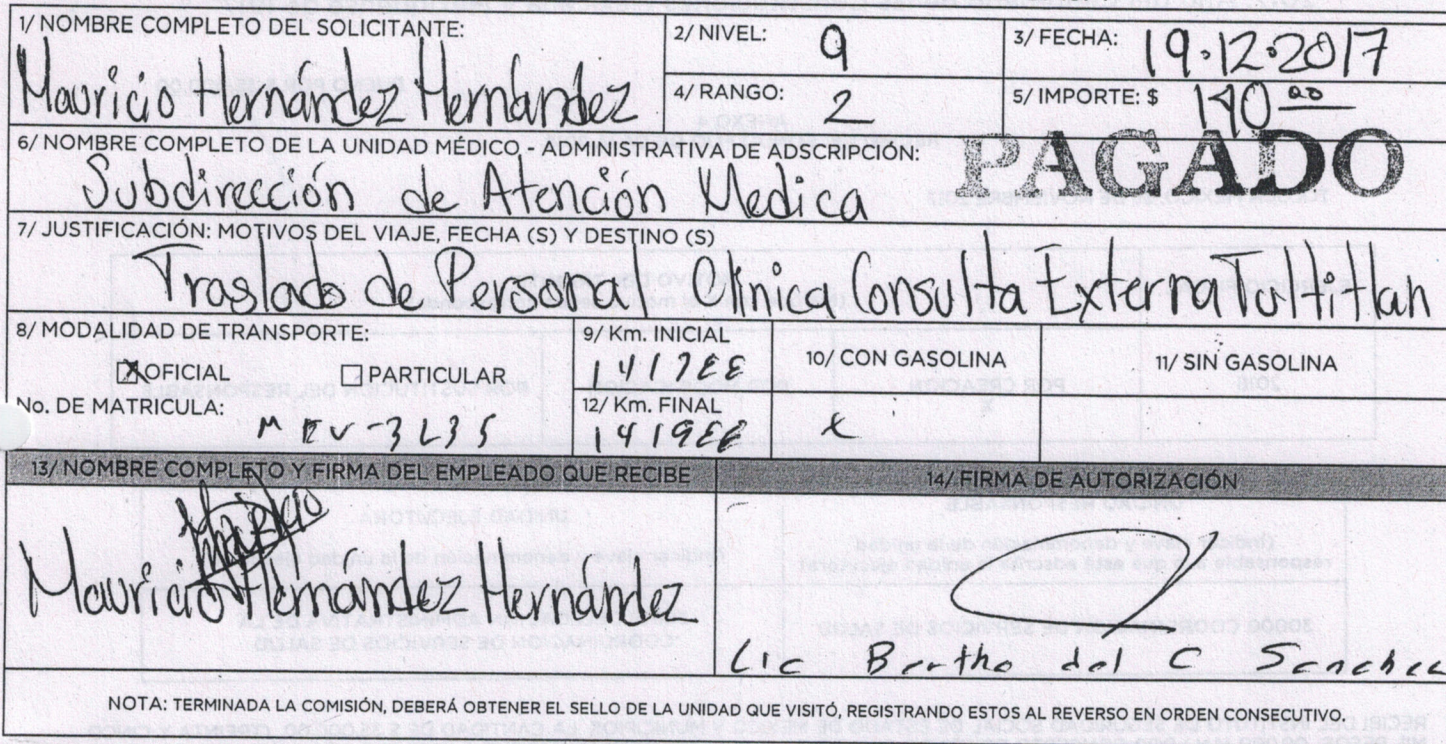 1/ NOMBRE COMPLETO DEL SOLICITANTE:
Mauricio Hernández Hernandez
2/ NIVEL: 9
3/ FECHA: 19.12.2017
4/ RANGO: 2
5/ IMPORTE: $ 190 00
PAGADO
6/ NOMBRE COMPLETO DE LA UNIDAD MÉDICO - ADMINISTRATIVA DE ADSCRIPCIÓN:
Subdirección de Atención Medica
7/ JUSTIFICACIÓN: MOTIVOS DEL VIAJE, FECHA (S) Y DESTINO (S)
Traslado de Personal Clinica Consulta Externa Tultitlan
8/ MODALIDAD DE TRANSPORTE:
OFICIAL PARTICULAR
9/ Km. INICIAL
10/ CON GASOLINA
11/ SIN GASOLINA
No. DE MATRICULA:
12/ Km. FINAL
x
13/ NOMBRE COMPLETO Y FIRMA DEL EMPLEADO QUE RECIBE
14/ FIRMA DE AUTORIZACIÓN
Mauricio Hernández Hernandez
Lic Bertha del C Sanchez
NOTA: TERMINADA LA COMISIÓN, DEBERÁ OBTENER EL SELLO DE LA UNIDAD QUE VISITÓ, REGISTRANDO ESTOS AL REVERSO EN ORDEN CONSECUTIVO.